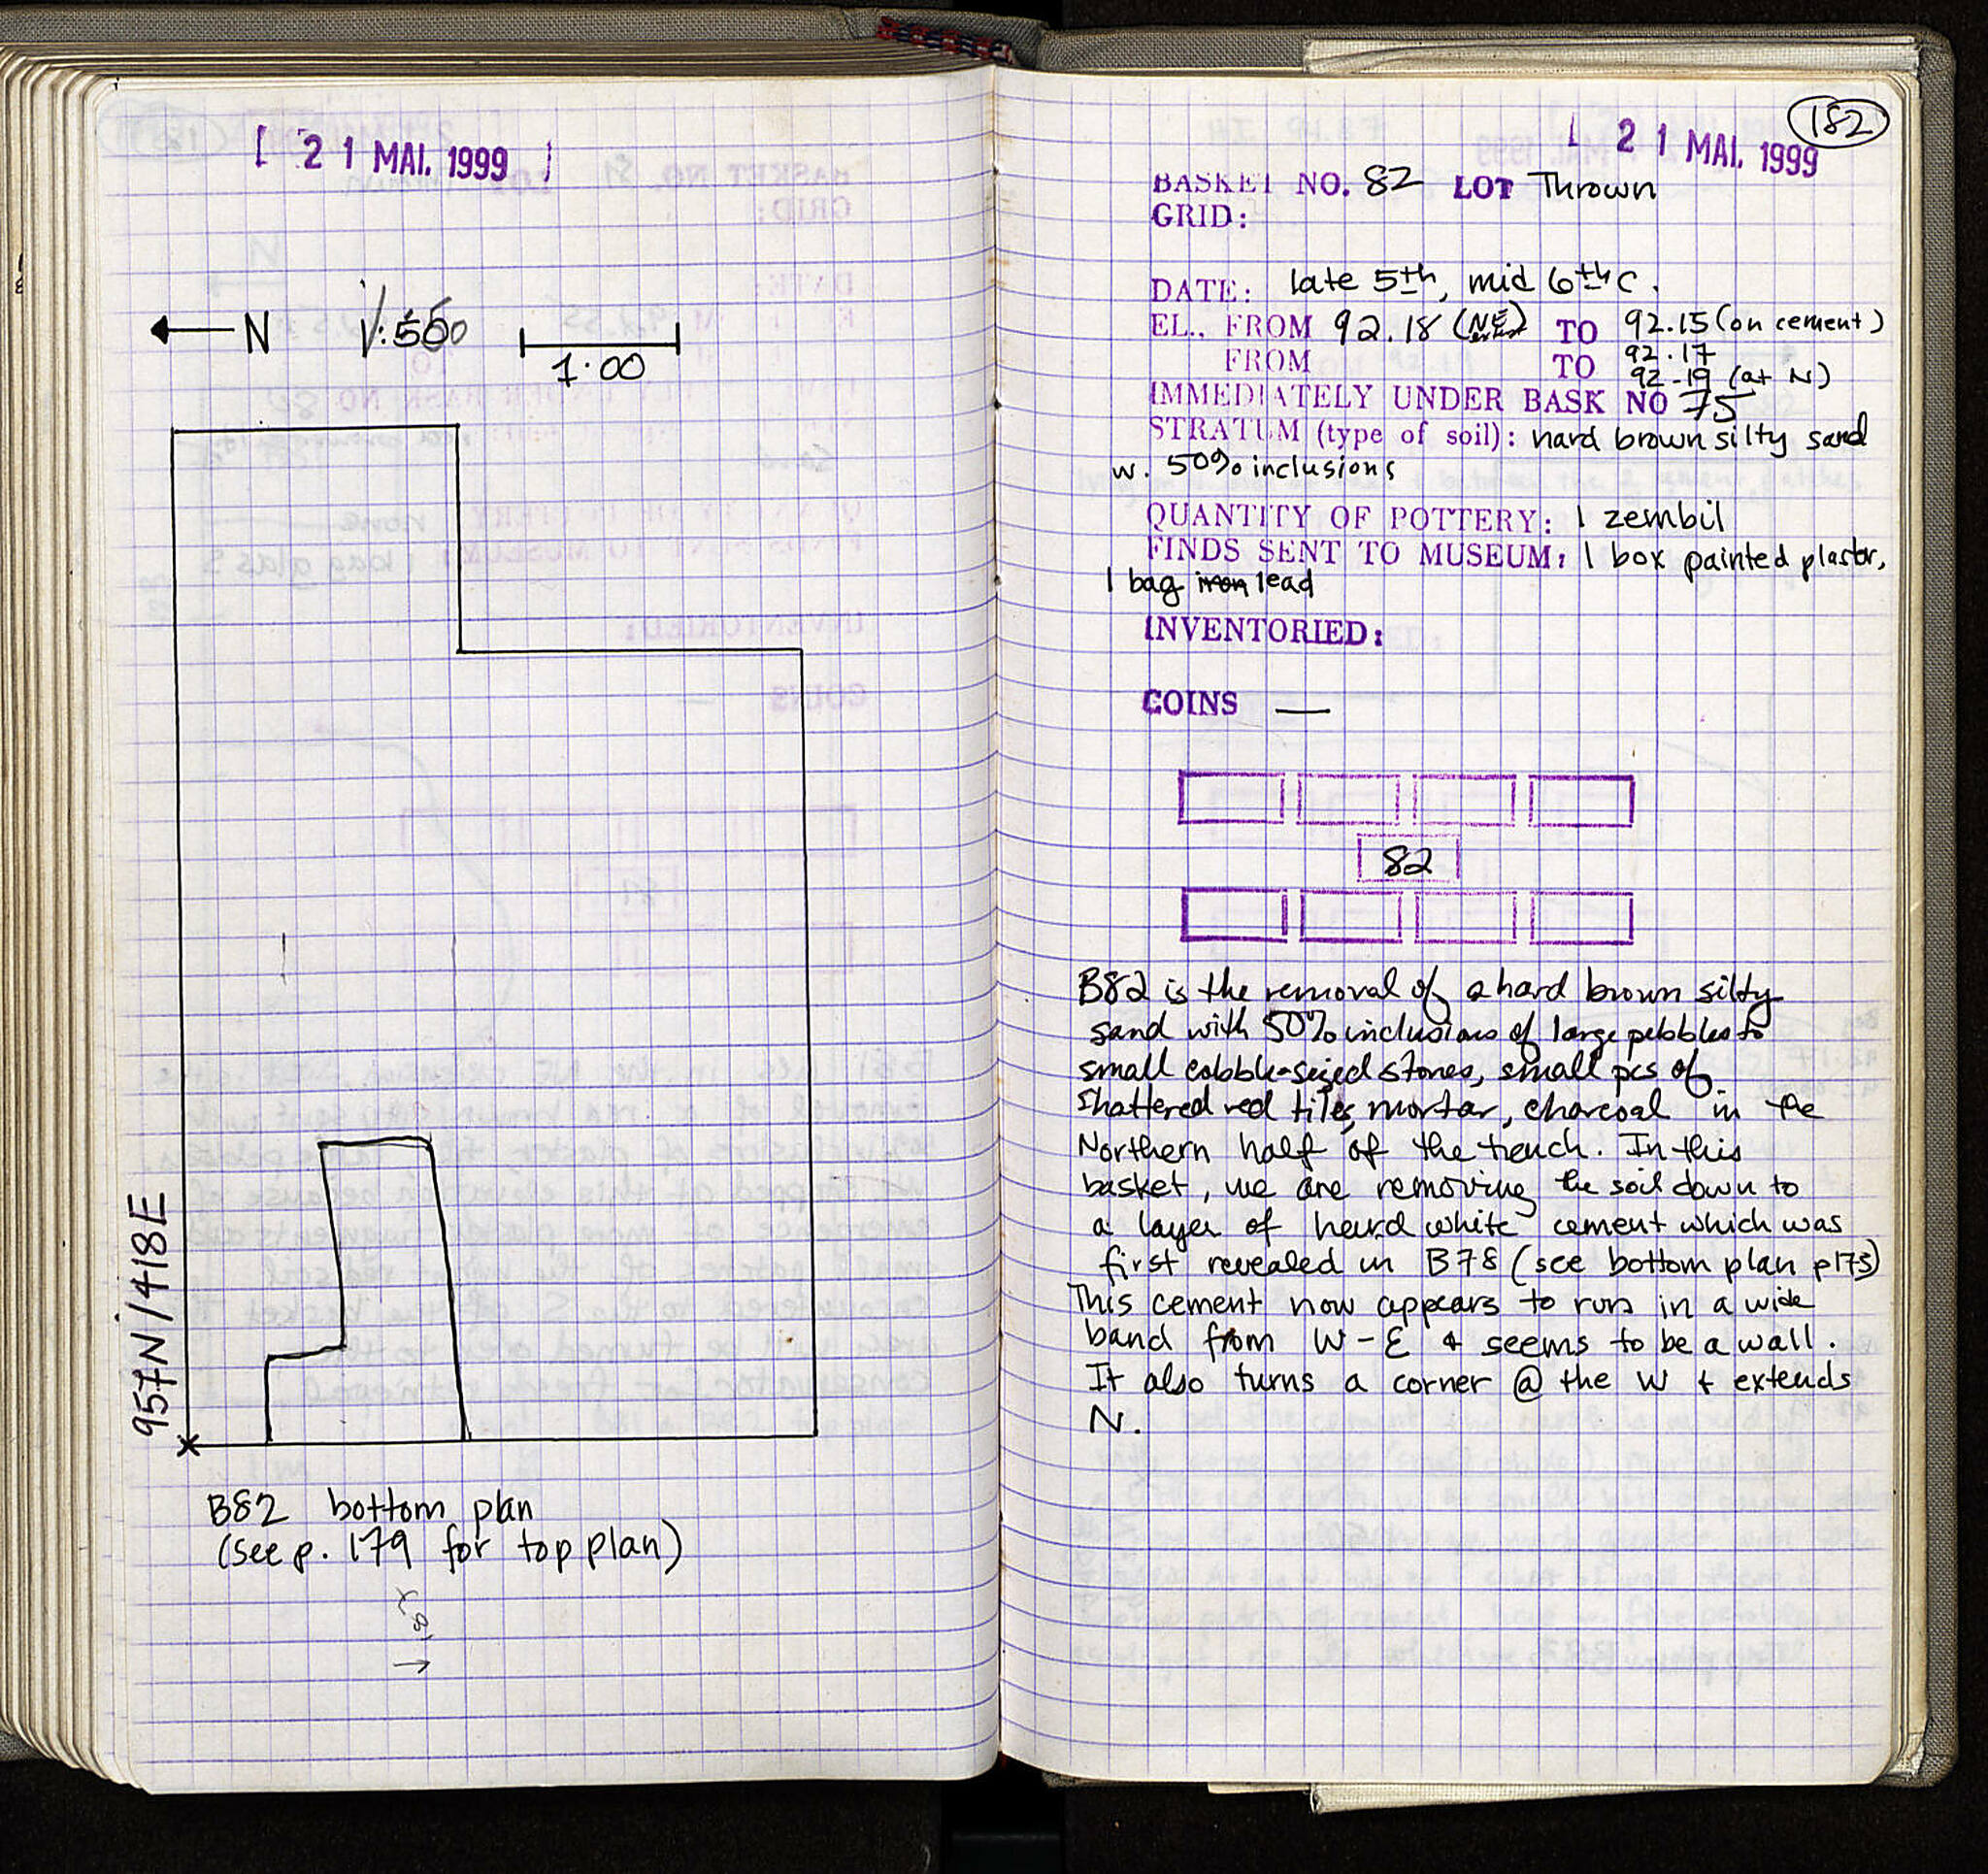 [ 21 MAI. 1999 ]
← N
1:00
957N/418E
B82 bottom plan
(see p. 179 for top plan)
182
[ 21 MAI. 1999
BASKET NO. 82 LOT Thrown
GRID:
DATE: late 5th, mid 6th c.
EL., FROM 92.18 (NE) TO 92.15 (on cement)
FROM TO 92.17
92.19 (at N)
IMMEDIATELY UNDER BASK NO 75
STRATUM (type of soil): hard brown silty sand
w. 50% inclusions
QUANTITY OF POTTERY: 1 zembil
FINDS SENT TO MUSEUM: 1 box painted plaster,
1 bag iron lead
INVENTORIED:
COINS —
82
B82 is the removal of a hard brown silty
sand with 50% inclusions of large pebbles to
small cobble-sized stones, small pcs of
shattered red tiles, mortar, charcoal in the
Northern half of the trench. In this
basket, we are removing the soil down to
a layer of heard white cement which was
first revealed in B78 (see bottom plan p175)
This cement now appears to run in a wide
band from W-E & seems to be a wall.
It also turns a corner @ the W & extends
N.